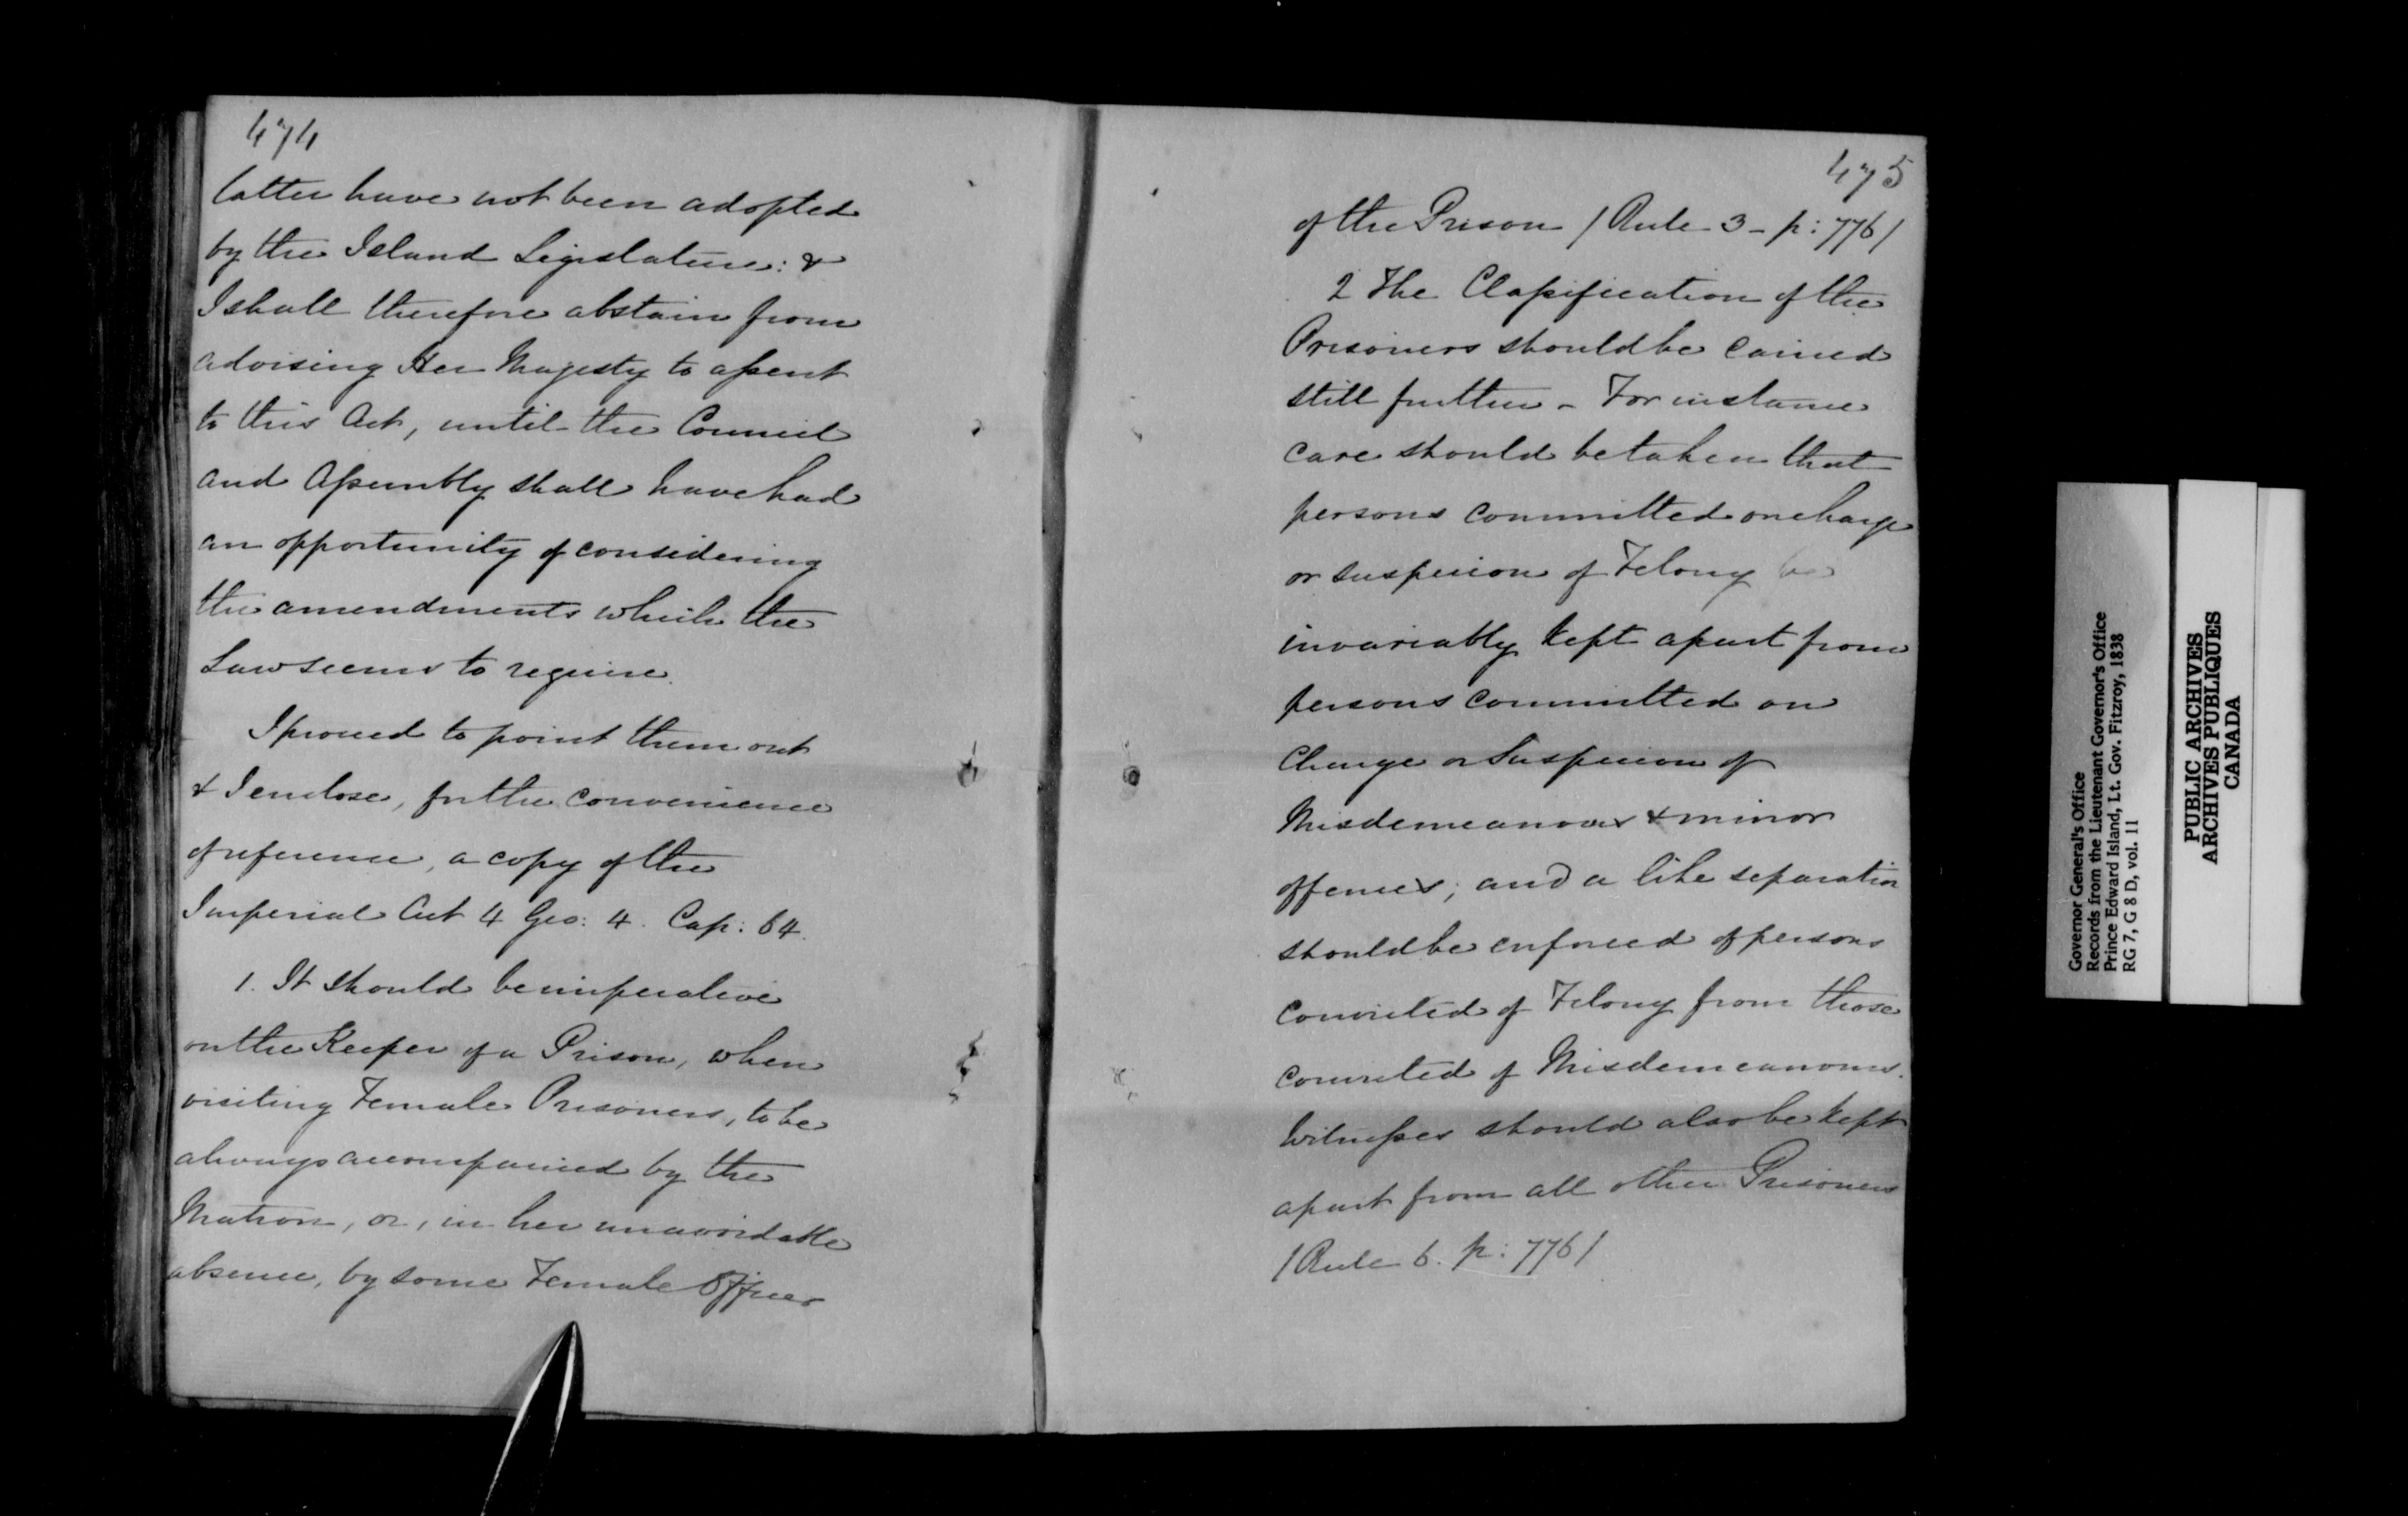 474
latter have not been adopted
by the Island Legislature: &
I shall therefore abstain from
advising Her Majesty to assent
to this Act, until the Council
and Assembly shall have had
an opportunity of considering
the amendments which the
Law seems to require.
I proceed to point them out
& I enclose, for the convenience
of reference, a copy of the
Imperial Act 4 Geo: 4. Cap: 64.
1. It should be imperative
on the Keeper of a Prison, when
visiting Female Prisoners, to be
always accompanied by the
Matron, or, in her unavoidable
absence, by some Female Officer
475
of the Prison / Rule 3 - p: 776 /
2 The Classification of the
Prisoners should be carried
still further - For instance
care should be taken that
persons committed on charge
or suspicion of Felony be
invariably kept apart from
persons committed on
Charge or Suspicion of
Misdemeanors & minor
offences; and a like separation
should be enforced of persons
convicted of Felony from those
convicted of Misdemeanors.
Witnesses should also be kept
apart from all other Prisoners
/ Rule 6. p: 776 /
Governor General's Office
Records from the Lieutenant Governor's Office
Prince Edward Island, Lt. Gov. Fitzroy, 1838
RG 7, G 8 D, vol. 11
PUBLIC ARCHIVES
ARCHIVES PUBLIQUES
CANADA